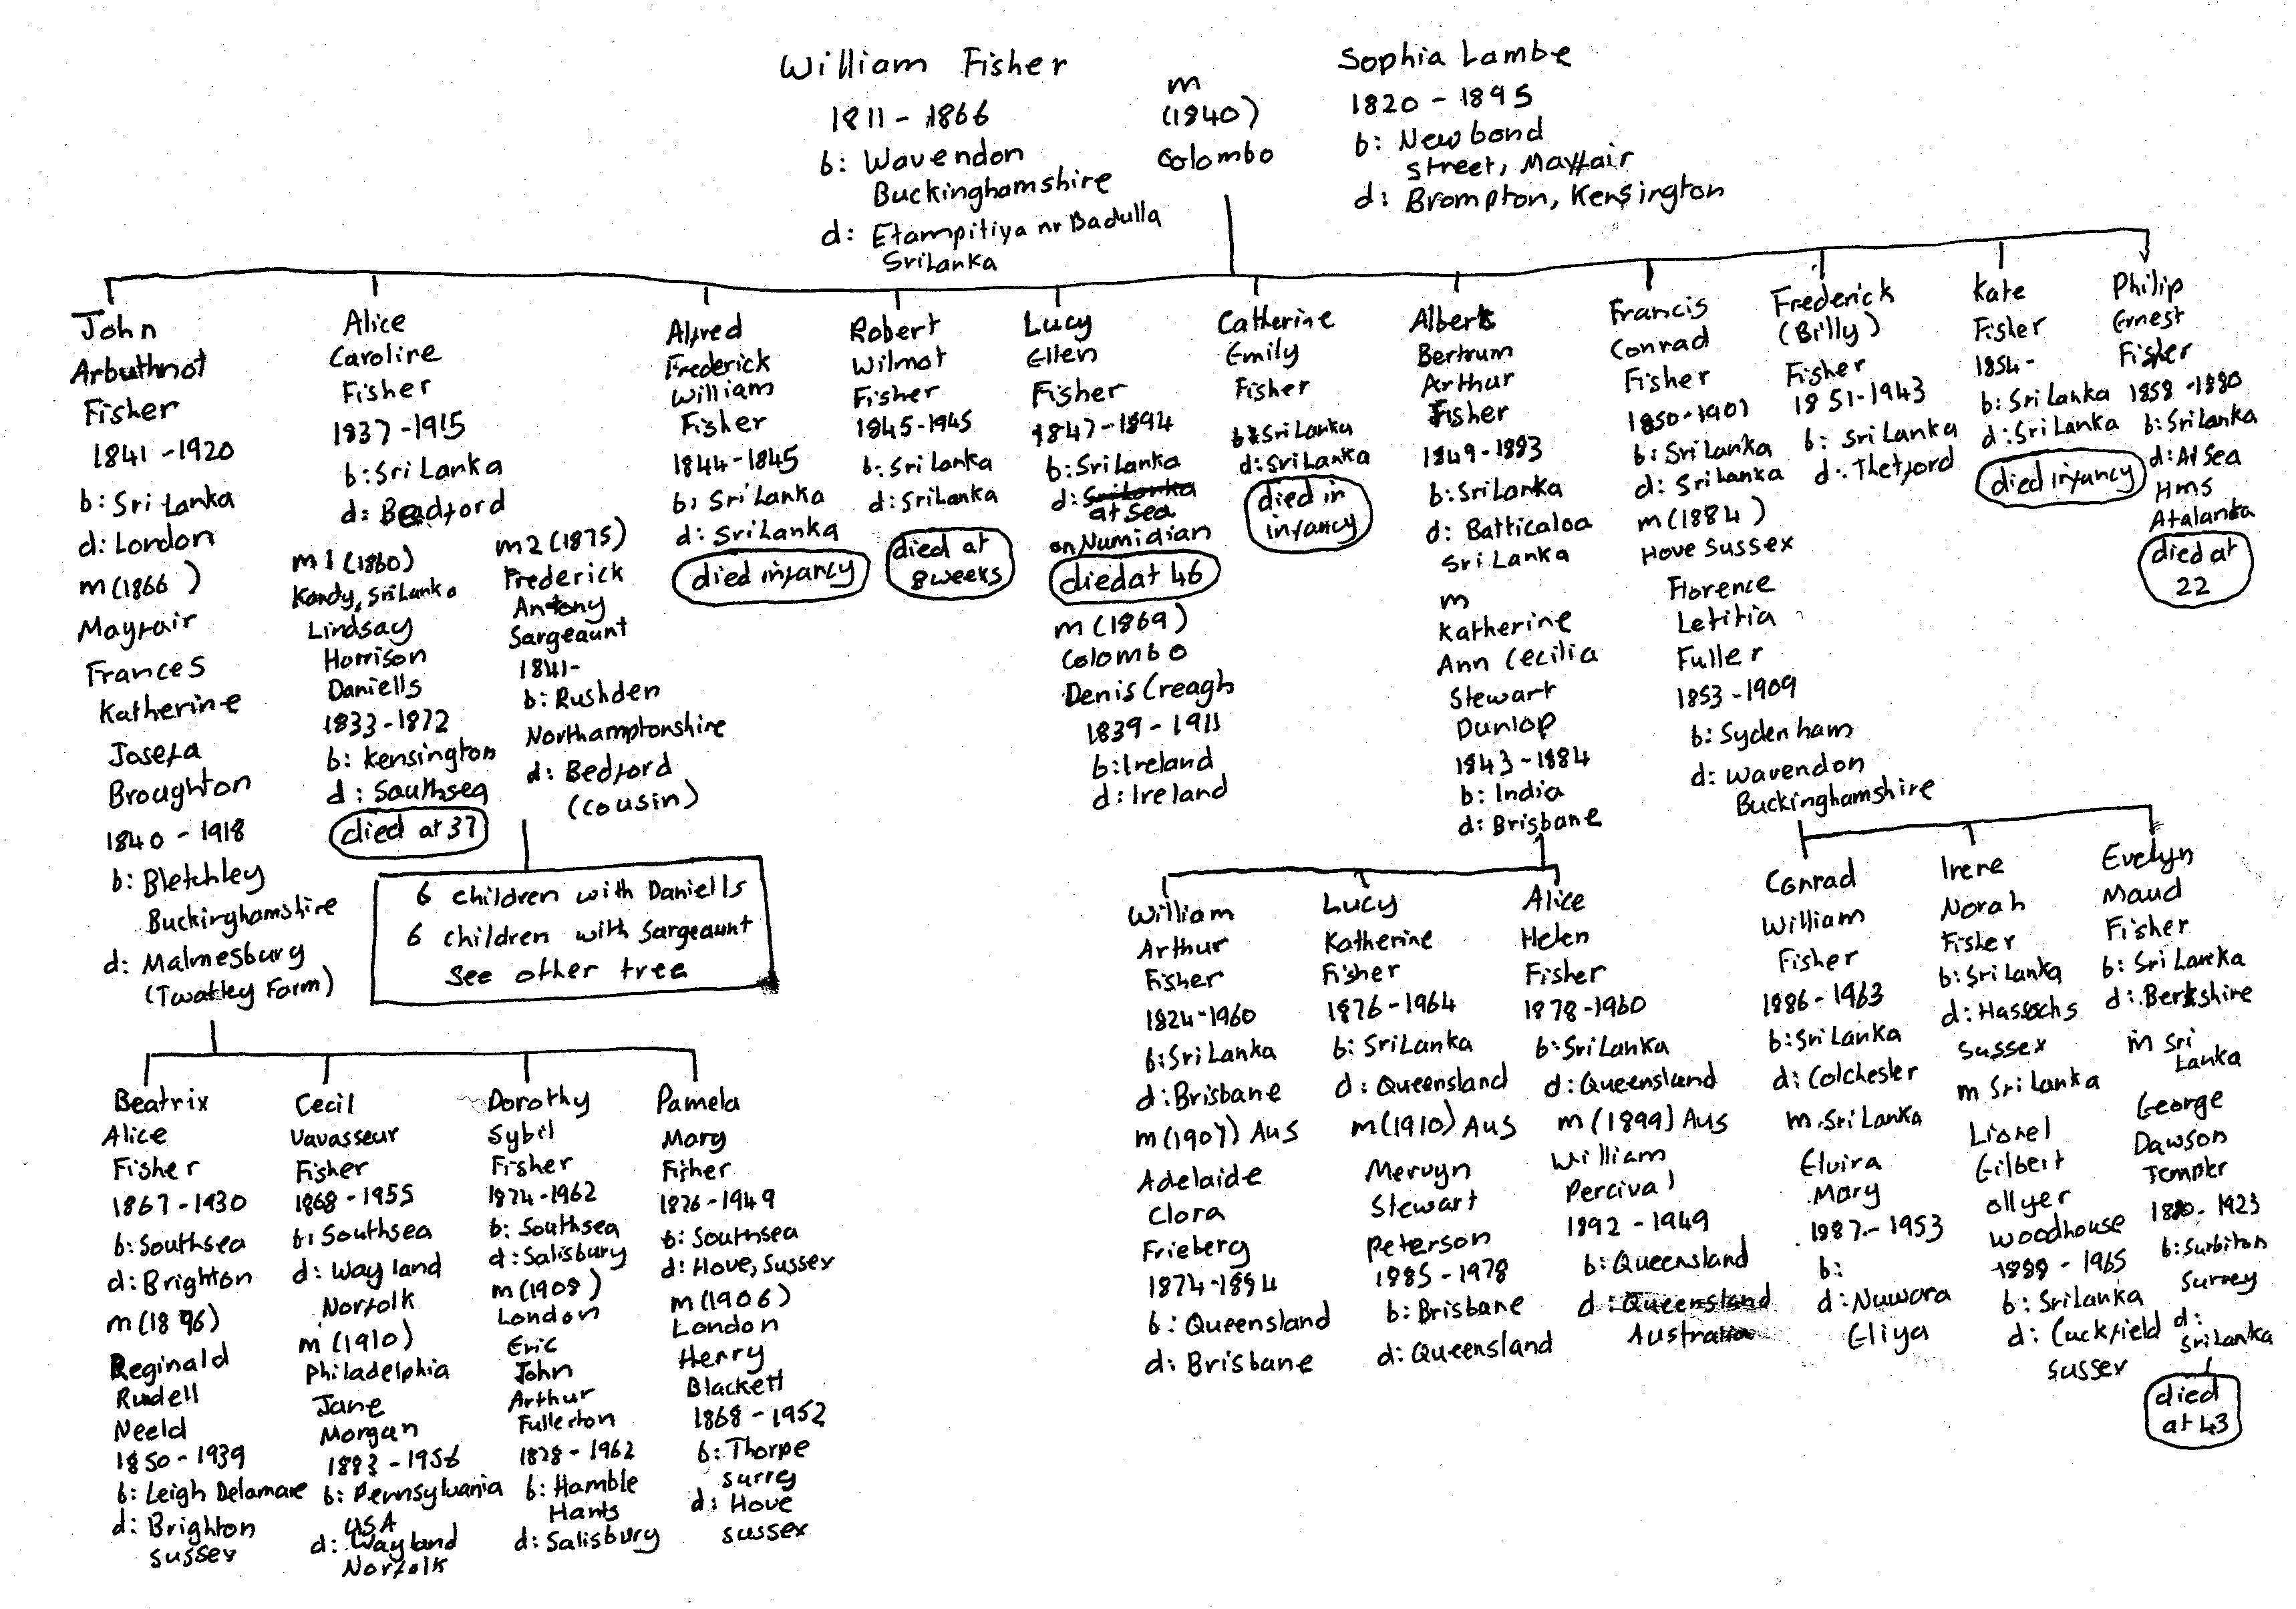 William Fisher
1811 - 1866
b: Wavendon
Buckinghamshire
d: Etampitiya nr Badulla
SriLanka
m
(1840)
Colombo
Sophia Lambe
1820 - 1895
b: New bond
street, Mayfair
d: Brompton, Kensington
John
Arbuthnot
Fisher
1841 - 1920
b: Sri Lanka
d: London
m (1866 )
Mayfair
Frances
Katherine
Josefa
Broughton
1840 - 1918
b: Bletchley
Buckinghamshire
d: Malmesbury
(Twatley Farm)
Alice
Caroline
Fisher
1837 - 1915
b: Sri Lanka
d: Bedford
m 1 (1860)
Kandy, SriLanka
Lindsay
Harrison
Daniells
1833 - 1872
b: Kensington
d: Southsea
died at 37
m2 (1875)
Frederick
Antony
Sargeaunt
1841-
b: Rushden
Northamptonshire
d: Bedford
(cousin)
6 children with Daniells
6 children with Sargeaunt
See other tree
Alfred
Frederick
William
Fisher
1844 - 1845
b: Sri Lanka
d: SriLanka
died infancy
Robert
Wilmot
Fisher
1845-1945
b: Sri Lanka
d: SriLanka
died at
8 weeks
Lucy
Ellen
Fisher
1847 - 1894
b: SriLanka
d: SriLanka
at Sea
on Numidian
died at 46
m (1869)
Colombo
Denis Creagh
1839 - 1911
b: Ireland
d: Ireland
Catherine
Emily
Fisher
b: SriLanka
d: SriLanka
died in
infancy
Albert
Bertrum
Arthur
Fisher
1849-1883
b: SriLanka
d: Batticaloa
Sri Lanka
m
Katherine
Ann Cecilia
Stewart
Dunlop
1843 - 1884
b: India
d: Brisbane
Francis
Conrad
Fisher
1850-1901
b: Sri Lanka
d: SriLanka
m (1884)
Hove Sussex
Florence
Letitia
Fuller
1853 - 1909
b: Sydenham
d: Wavendon
Buckinghamshire
Frederick
(Billy)
Fisher
1851-1943
b: Sri Lanka
d: Thetford
Kate
Fisher
1854-
b: Sri Lanka
d: Sri Lanka
died infancy
Philip
Ernest
Fisher
1858 - 1880
b: SriLanka
d: At Sea
HMS
Atalanta
died at
22
Beatrix
Alice
Fisher
1867 - 1930
b: Southsea
d: Brighton
m (1896)
Reginald
Rudell
Neeld
1850 - 1939
b: Leigh Delamare
d: Brighton
Sussex
Cecil
Vavasseur
Fisher
1868 - 1955
b: Southsea
d: Wayland
Norfolk
m (1910)
Philadelphia
Jane
Morgan
1883 - 1956
b: Pennsylvania
USA
d: Wayland
Norfolk
Dorothy
Sybil
Fisher
1874-1962
b: Southsea
d: Salisbury
m (1908)
London
Eric
John
Arthur
Fullerton
1878 - 1962
b: Hamble
Hants
d: Salisbury
Pamela
Mary
Fisher
1876-1949
b: Southsea
d: Hove, Sussex
m (1906)
London
Henry
Blackett
1868 - 1952
b: Thorpe
surrey
d: Hove
sussex
William
Arthur
Fisher
1824-1960
b: SriLanka
d: Brisbane
m (1907) Aus
Adelaide
Clora
Frieberg
1874-1894
b: Queensland
d: Brisbane
Lucy
Katherine
Fisher
1876 - 1964
b: SriLanka
d: Queensland
m (1910) Aus
Mervyn
Stewart
Peterson
1885 - 1978
b: Brisbane
d: Queensland
Alice
Helen
Fisher
1878-1960
b: SriLanka
d: Queensland
m (1899) Aus
William
Percival
1892 - 1949
b: Queensland
d: Queensland
Australia
Conrad
William
Fisher
1886 - 1963
b: Sri Lanka
d: Colchester
m. Sri Lanka
Elvira
Mary
1887 - 1953
b:
d: Nuwara
Eliya
Irene
Norah
Fisher
b: Sri Lanka
d: Hassochs
Sussex
m Sri Lanka
Lionel
Gilbert
Ollyer
Woodhouse
1888 - 1965
b: SriLanka
d: Cuckfield
Sussex
Evelyn
Maud
Fisher
b: Sri Lanka
d: Berkshire
m Sri
Lanka
George
Dawson
Templer
1880 - 1923
b: Surbiton
Surrey
d:
SriLanka
died
at 43